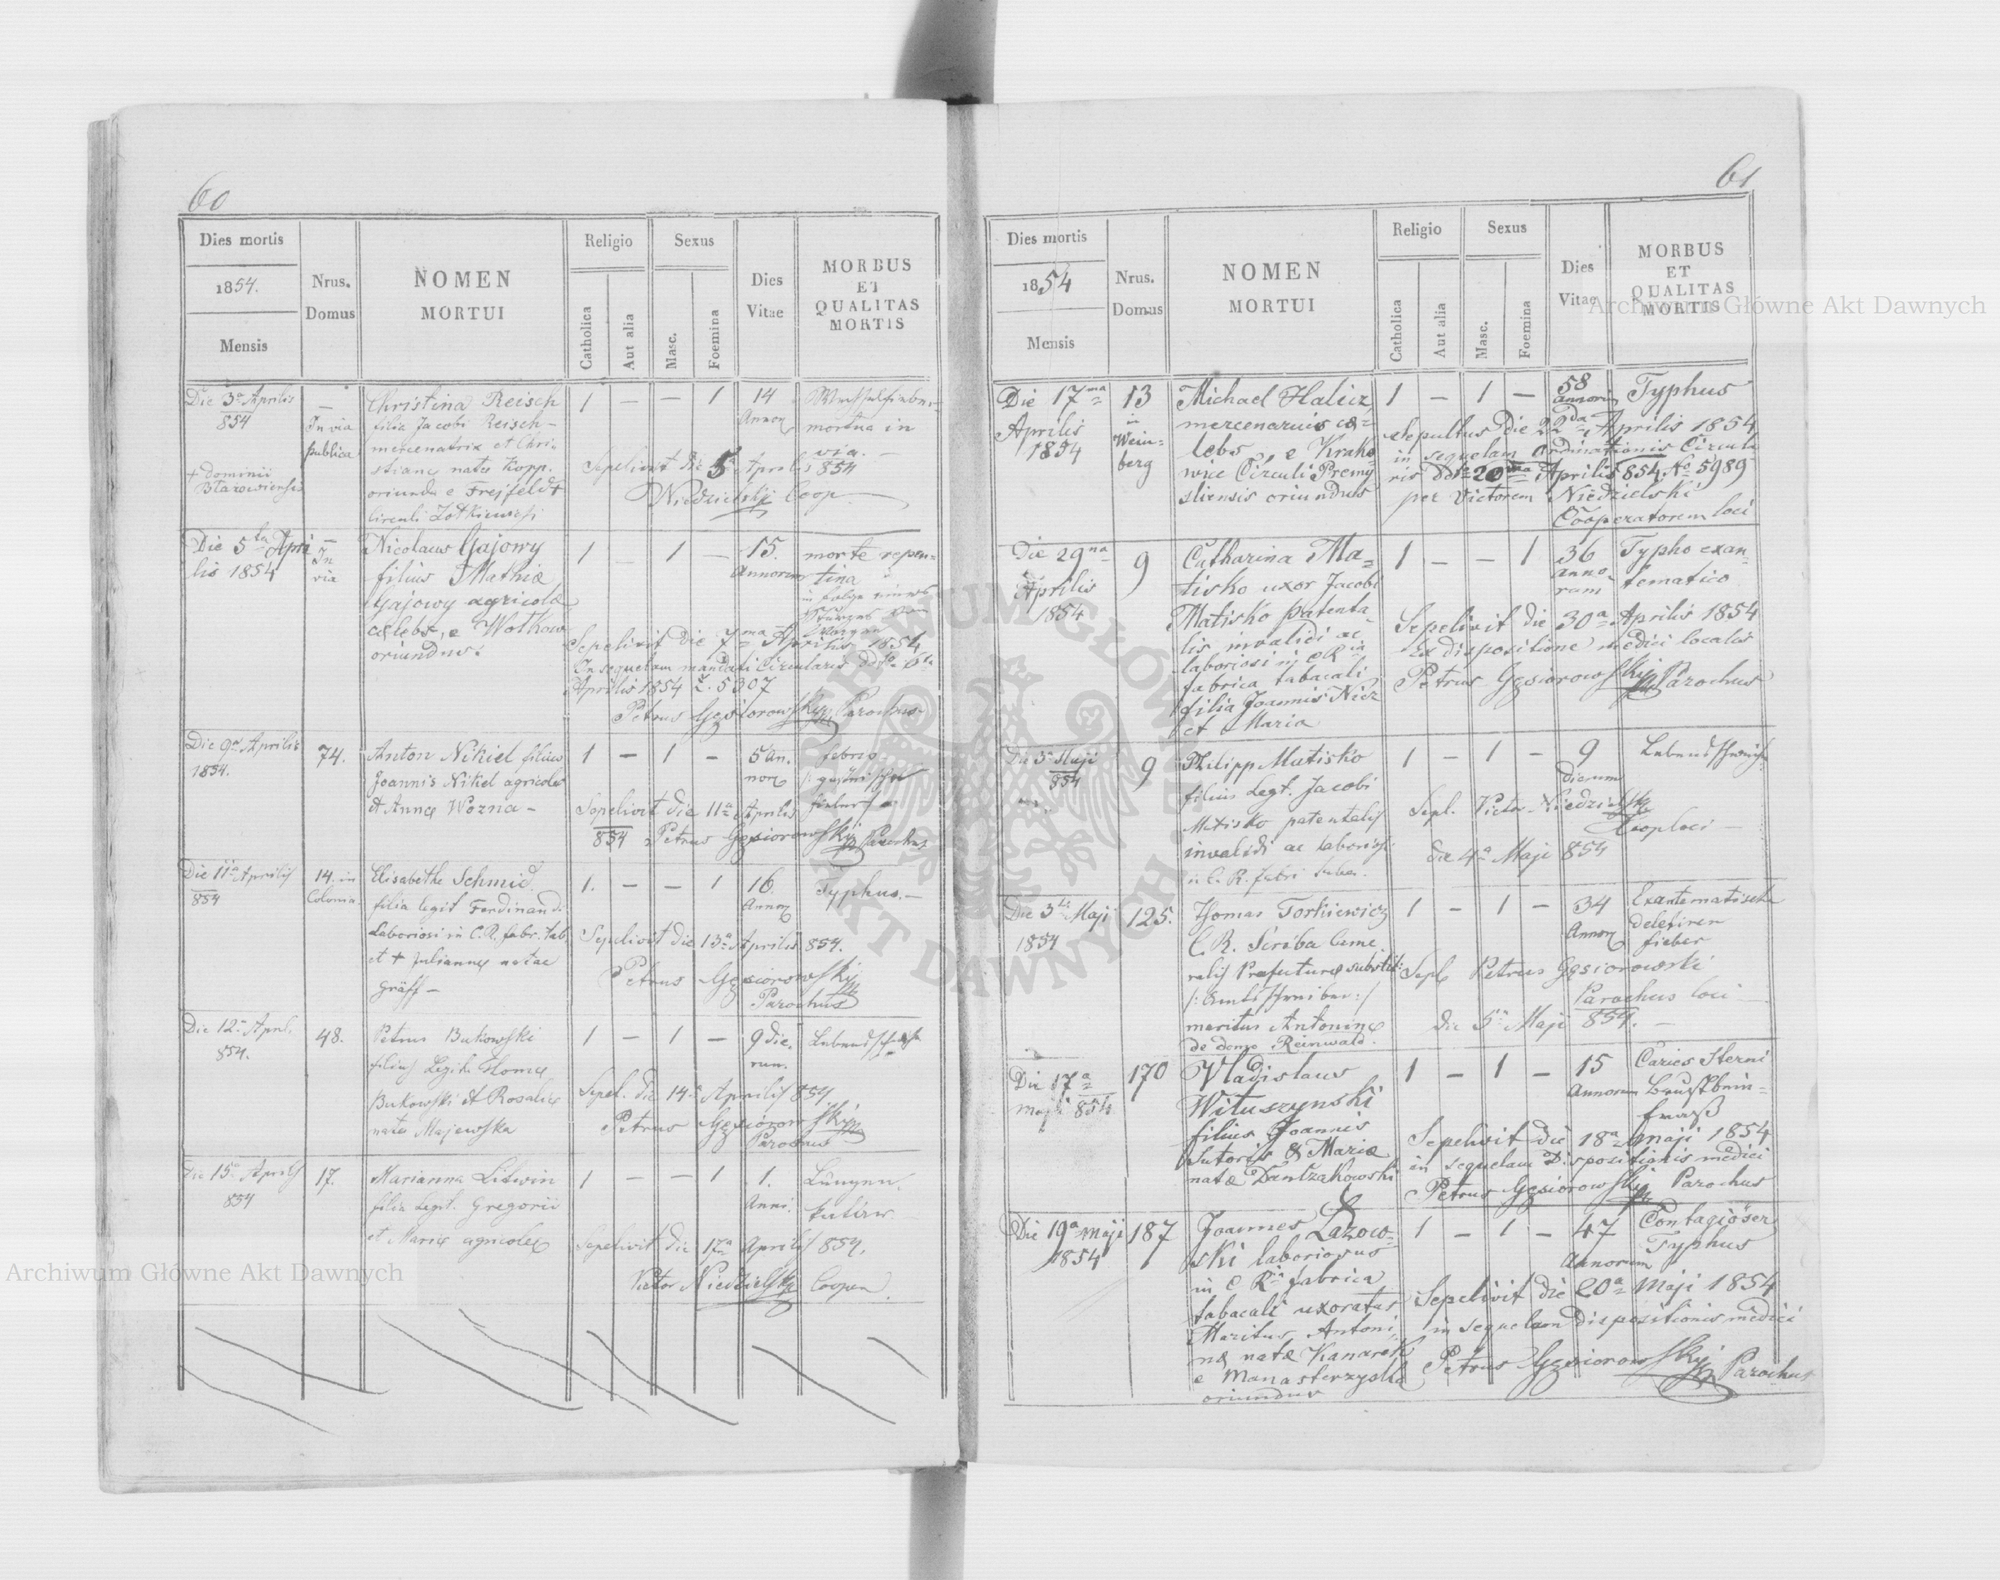 60
Dies mortis
1854.
Mensis
Nrus.
Domus
NOMEN
MORTUI
Religio
Catholica
Aut alia
Sexus
Masc.
Foemina
Dies
Vitae
MORBUS
ET
QUALITAS
MORTIS
Die 3a Aprilis
854
In via
publica
Christina Reisch
filia Jacobi Reisch
mercenatrix et Chri-
stianæ natæ Kopp.
oriunda e Frejfeldt
Circuli Zołkiewsi
1 — — 1 14
Annor
mortua in
via. —
Sepelivit die 5a Aprilis 854
Niedzielskj Coop.
Die 5ta Apri
lis 1854
In
via
Nicolaus Gajowy
filius Mathiæ
Gajowy agricolæ
cælebs, e Wołkow
oriundus.
1 — 1 — 15.
Annorum
morte repen-
tina
in Folge eines
Sturzes vom
Wagen
Sepelivit die 7ma Aprilis 1854
In sequelam mandati Circularis ddto 6ta
Aprilis 1854 Z. 5307
Petrus Gęsiorowskj Parochus
Die 9a Aprilis
1854.
74.
Anton Nikiel filius
Joannis Nikel agricolæ
et Annæ Wozna —
1 — 1 — 5 an.
nor
febris
Sepelivit die 11a Aprilis
854 Petrus Gęsiorowskj Parochus
Die 11a Aprilis
854
14. in
Colonia
Elisabetha Schmid
filia legit Ferdinandi
Laboriosi in C. R. fabr. tab.
et + Juliannæ natae
Gräff —
1. — — 1 16.
Annor
Typhus. —
Sepelivit die 13a Aprilis 854.
Petrus Gęsiorowskj
Parochus
Die 12a April.
854.
48.
Petrus Bukowski
filius Legit. Thomæ
Bukowski et Rosaliæ
nata Majewska
1 — 1 — 9 die.
rum.
Lebensschwäche
Sepel. die 14a Aprilis 854.
Petrus Gęsiorowskj
Parochus
Die 15a Aprilis
854
17.
Marianna Litwin
filia Legit. Gregorii
et Mariæ agricolæ
1 — — 1 1.
Anni.
Lungen
Sepelivit die 17a Aprilis 854.
Victor Niedzielskj Cooper.
61
Dies mortis
1854
Mensis
Nrus.
Domus
NOMEN
MORTUI
Religio
Catholica
Aut alia
Sexus
Masc.
Foemina
Dies
Vitae
MORBUS
ET
QUALITAS
MORTIS
Die 17ma
Aprilis
1854
13
in
Wein-
berg
Michael Halicz,
mercenarius cæ-
lebs, e Krako
wie Circuli Premy
sliensis oriundus
1 — 1 — 58
annorum
Typhus
Sepultus die 22da Aprilis 1854
in sequelam Ordinationis Circula
ris ddto 20ma Aprilis 854. No 5989
per Victorem Niedzielski
Cooperatorem loci
Die 29na
Aprilis
1854
9
Catharina Ma-
tisko uxor Jacobi
Matisko patenta-
lis invalidi ac
laboriosi in C Ria
fabrica tabacali
filia Joannis Nicz
et Maria
1 — — 1 36
anno-
rum
Typho exan-
tematico
Sepelivit die 30a Aprilis 1854
Ex dispositione medici localis
Petrus Gęsiorowskj Parochus
Die 3a Maji
854
9
Philipp Matisko
filius Legt. Jacobi
Matisko patentalis
invalidi ac laborios.
in C. R. fabri tabac.
1 — 1 — 9
dierum
Lebensschwäche
Sepl. Victor Niedzielskj
Cooploci —
die 4a Maji 854
Die 3a Maji
1854
125.
Thomas Torkiewicz
C. R. Scriba Came
ralis Præfecturæ substit:
/: Amtsschreiber :/
maritus Antoninæ
de domo Reinwald.
1 — 1 — 34
Annor
Exantematisch
fieber
Sepl Petrus Gęsiorowski
Parochus loci
die 5a Maji 854. —
Die 17a
maji 854
170
Vladislaus
Wituszynski
filius Joannes
Sutoris & Mariæ
natæ Dantzakowski
1 — 1 — 15
Annorum
Caries Sterni
Brustbein-
fraß
Sepelivit die 18a maji 1854
in sequelam Dispositionis medici
Petrus Gęsiorowskj Parochus
Die 19a maji
1854
187
Joannes Lazow-
ski laboriosus
in C Ria fabrica
tabacali uxoratus
Maritus Antoni-
næ natæ Kanarek
e Manasterzyska
oriundus
1 — 1 — 47
Annorum
Contagiöser
Typhus
Sepelivit die 20a Maji 1854
in sequelam dispositionis medici
Petrus Gęsiorowskj Parochus
Archiwum Główne Akt Dawnych
Archiwum Główne Akt Dawnych
ARCHIWUM GŁÓWNE AKT DAWNYCH